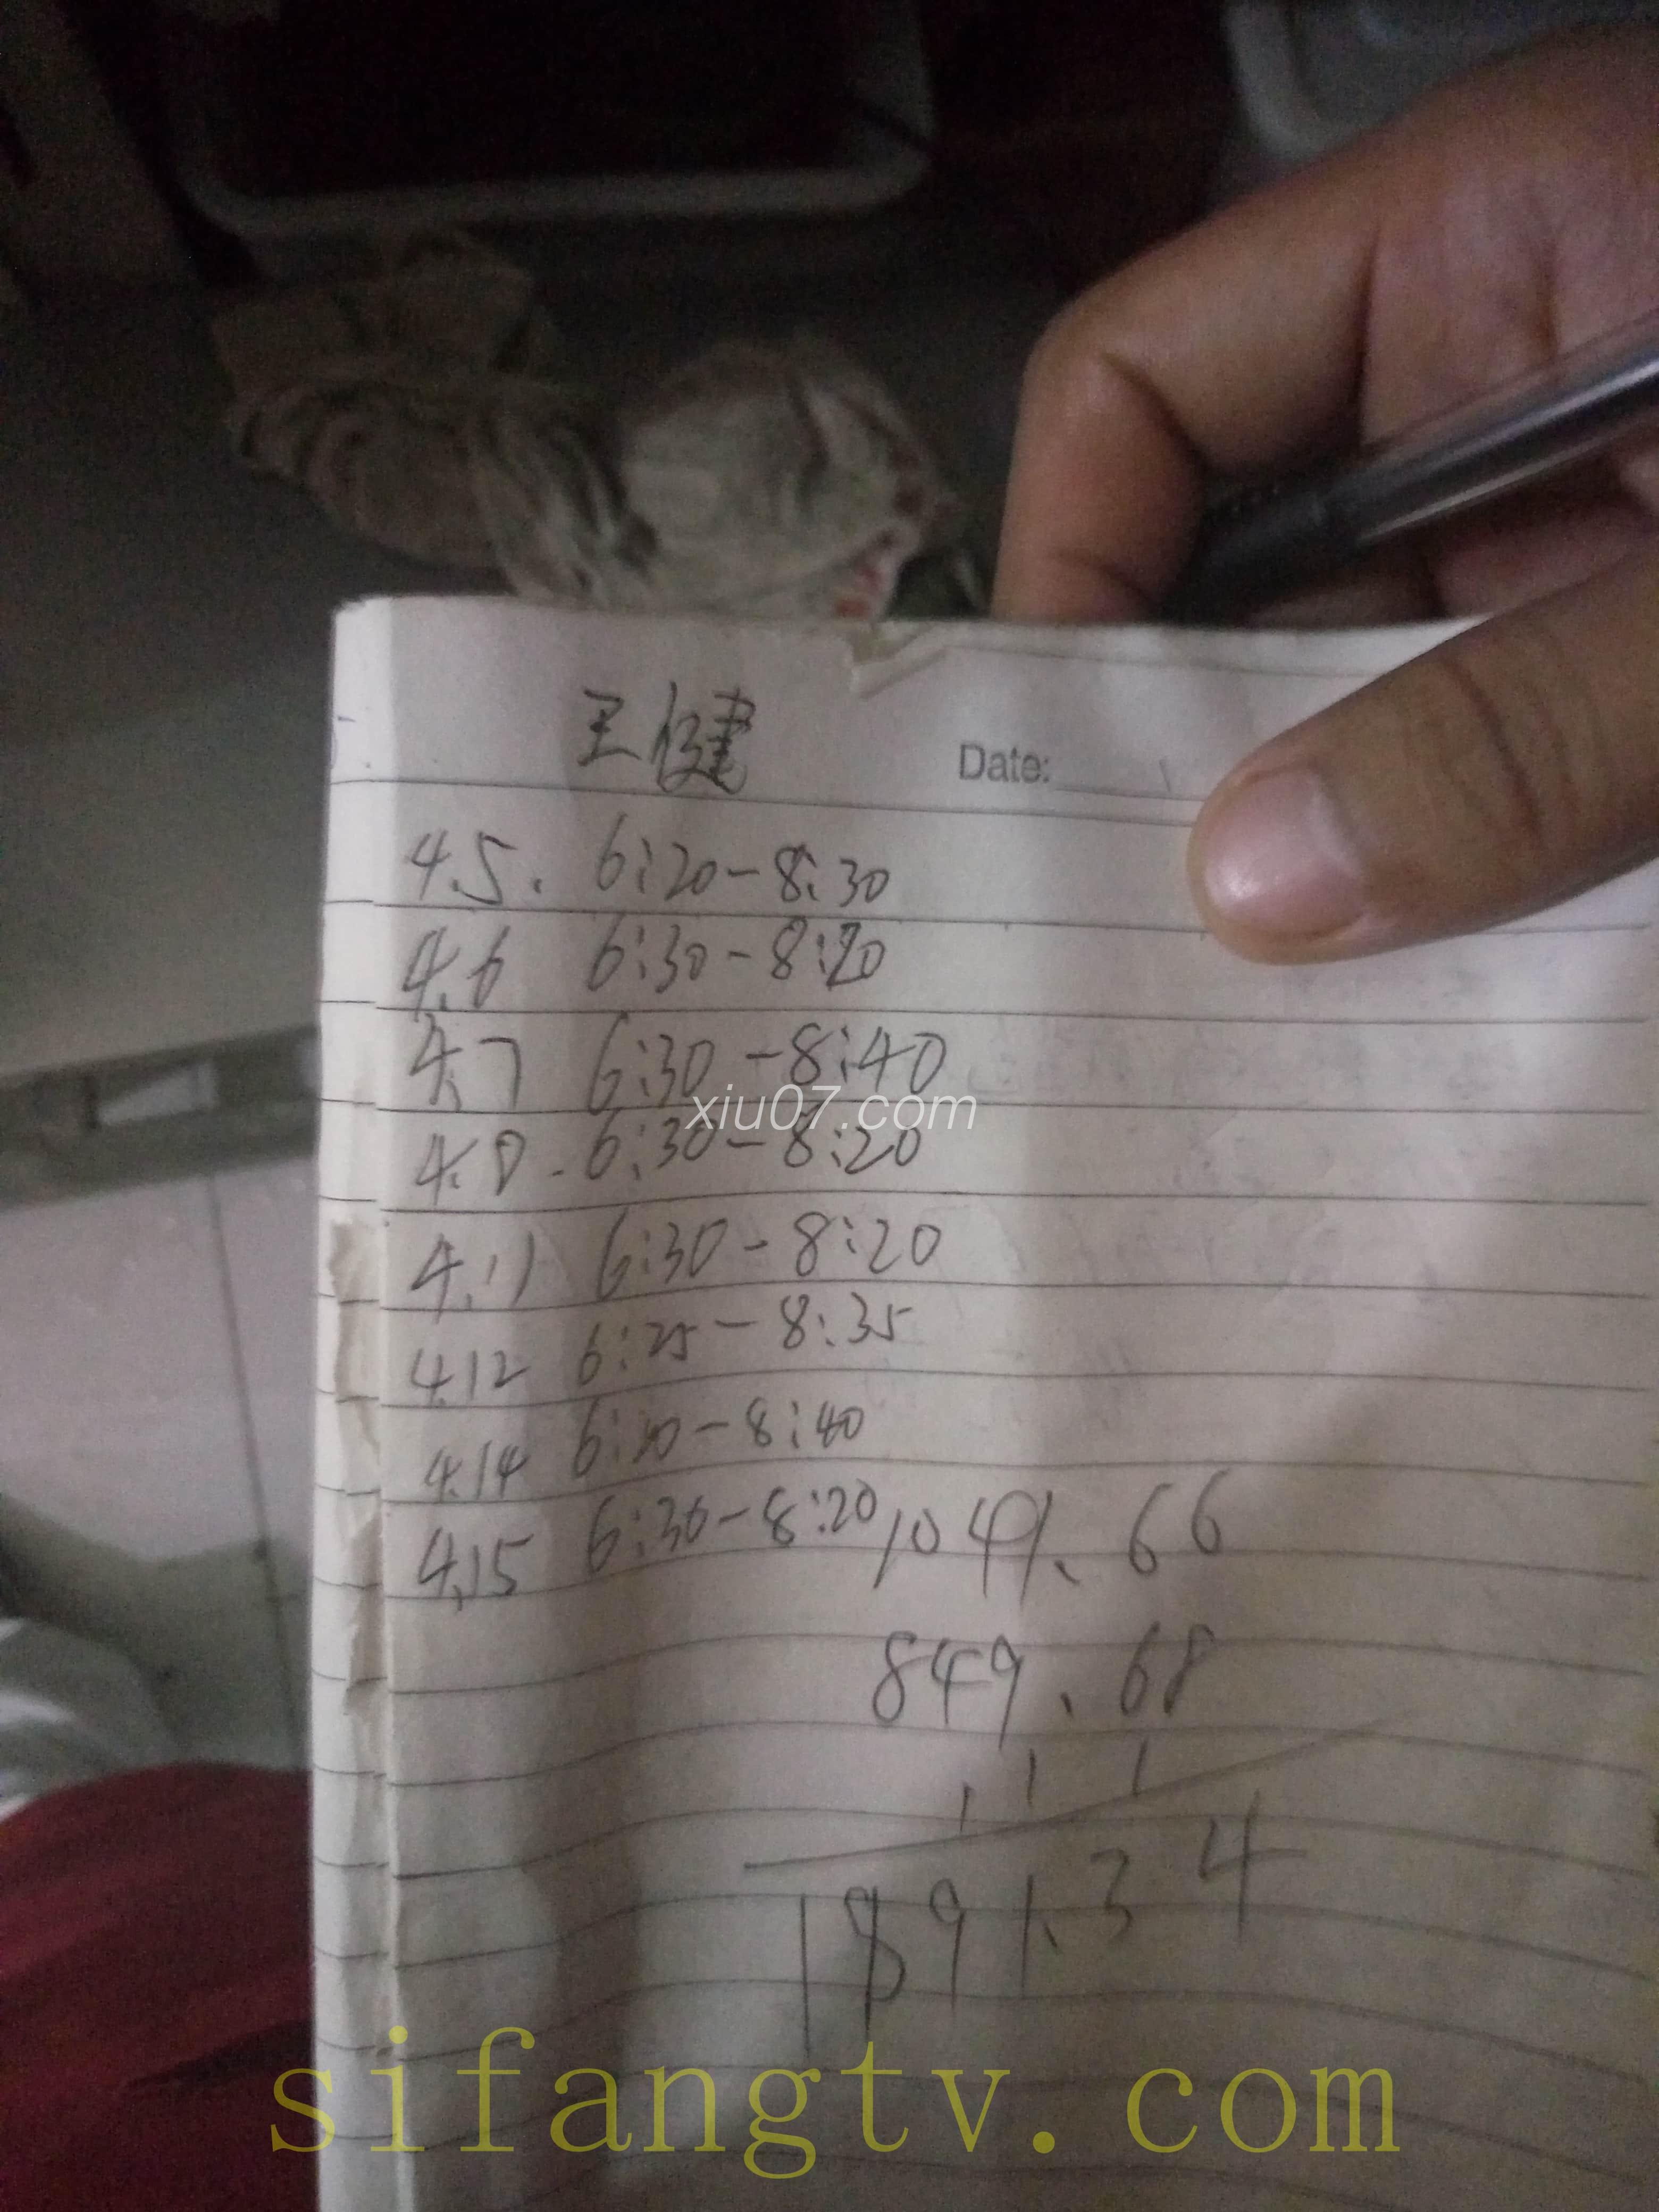 王健
Date:
4.5. 6:20-8:30
4.6 6:30-8:20
4.7 6:30-8:40
xiu07.com
4.8 - 6:30-8:20
4.11 6:30-8:20
4.12 6:25-8:35
4.14 6:30-8:40
4.15 6:30-8:20
1041.66
849.68
1 1 1
1891.34
sifangtv.com